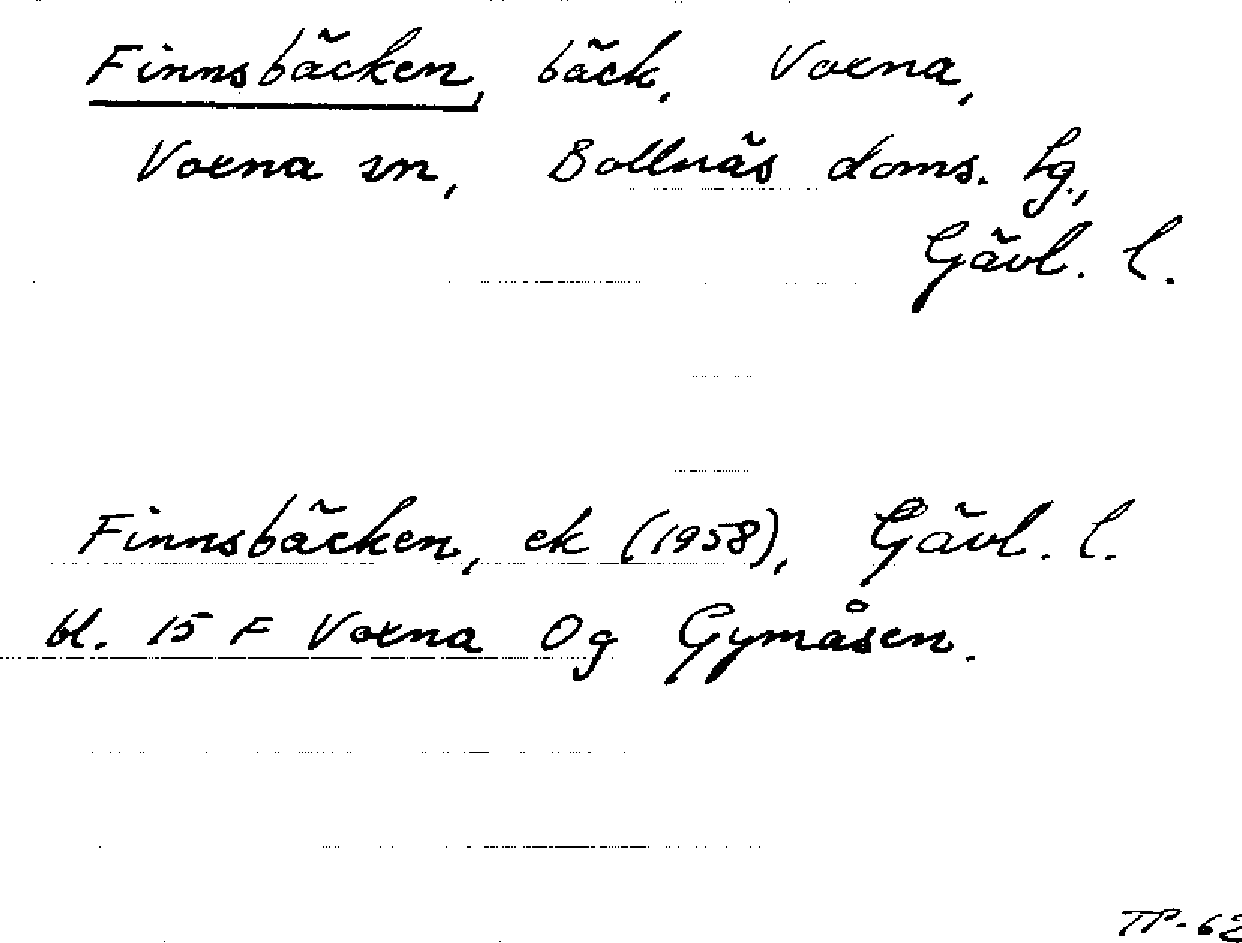 Finnsbäcken, bäck, Voxna,
Voxna sn, Bollnäs doms. hg.,
Gävl. l.
Finnsbäcken, ek (1958), Gävl. l.
bl. 15 F Voxna Og Gymåsen.
TP-62